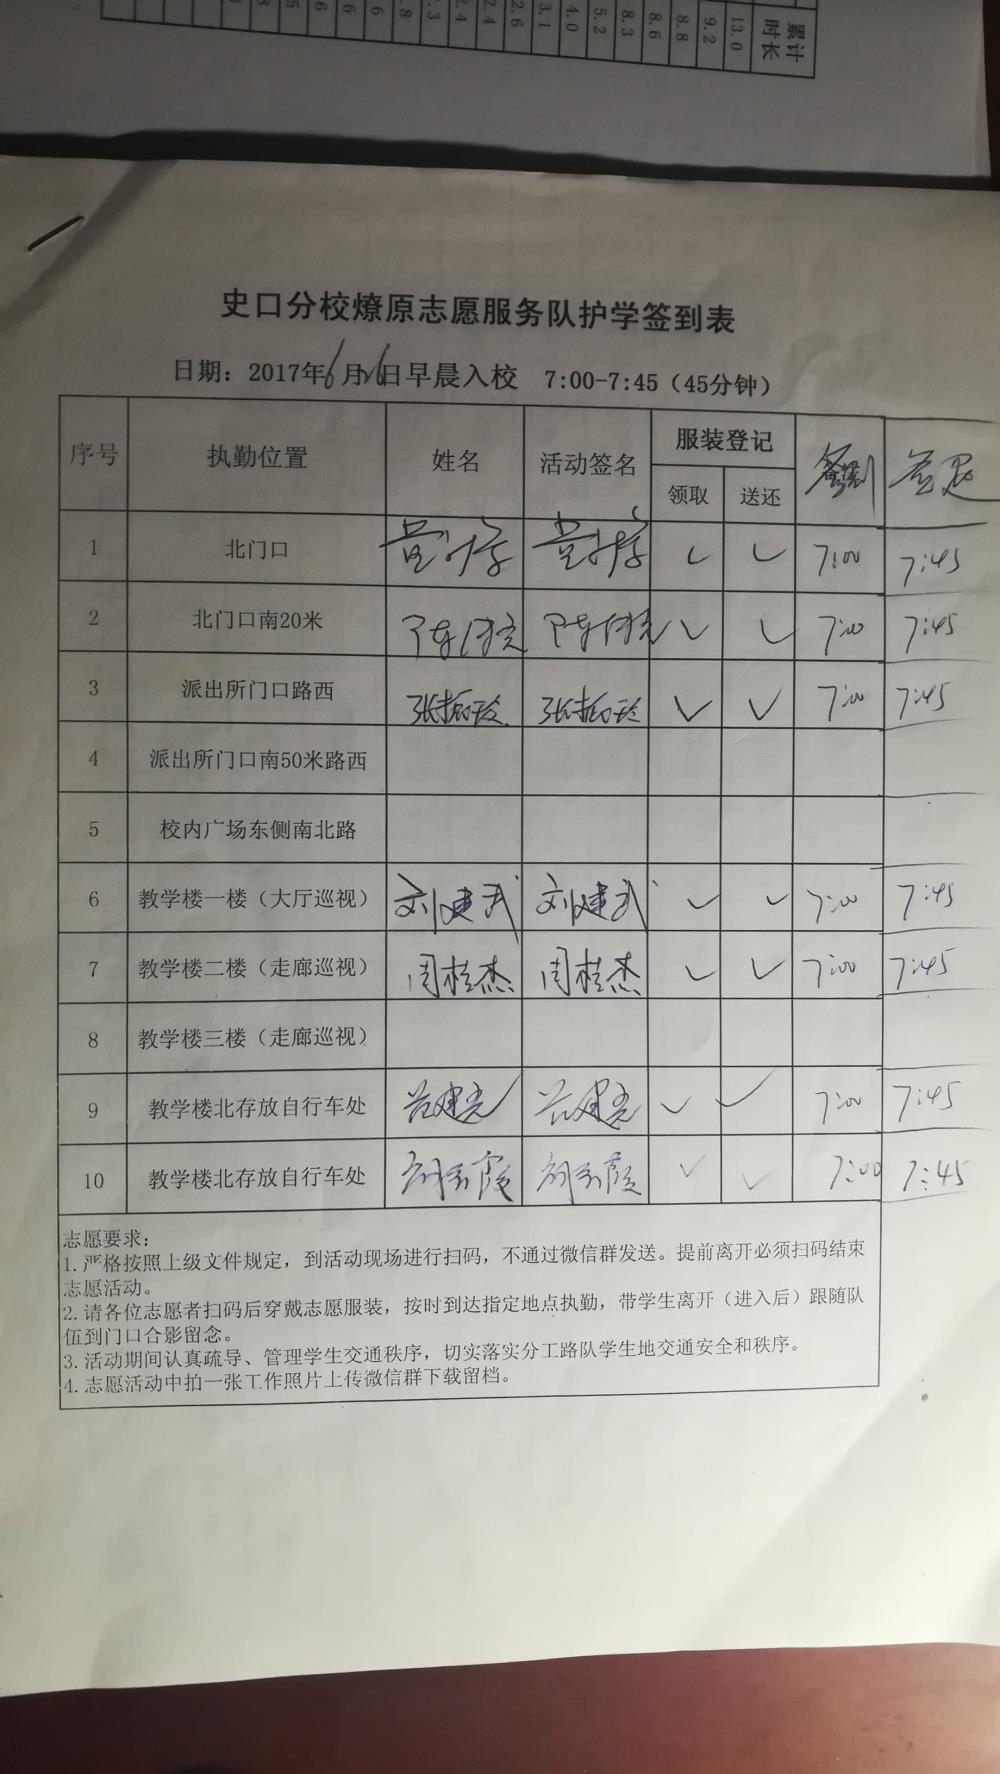 累计
时长
13.0
9.2
8.8
8.6
8.3
5.2
4.0
3.1
2.6
2.4
2.4
史口分校燎原志愿服务队护学签到表
日期：2017年6月26日早晨入校 7:00-7:45（45分钟）
序号 执勤位置 姓名 活动签名 服装登记 签到 签退
领取 送还
1 北门口 ✓ ✓ 7:00 7:45
2 北门口南20米 ✓ ✓ 7:00 7:45
3 派出所门口路西 张振玲 张振玲 ✓ ✓ 7:00 7:45
4 派出所门口南50米路西
5 校内广场东侧南北路
6 教学楼一楼（大厅巡视） 刘建武 刘建武 ✓ ✓ 7:00 7:45
7 教学楼二楼（走廊巡视） 周桂杰 周桂杰 ✓ ✓ 7:00 7:45
8 教学楼三楼（走廊巡视）
9 教学楼北存放自行车处 ✓ ✓ 7:00 7:45
10 教学楼北存放自行车处 ✓ ✓ 7:00 7:45
志愿要求：
1.严格按照上级文件规定，到活动现场进行扫码，不通过微信群发送。提前离开必须扫码结束
志愿活动。
2.请各位志愿者扫码后穿戴志愿服装，按时到达指定地点执勤，带学生离开（进入后）跟随队
伍到门口合影留念。
3.活动期间认真疏导、管理学生交通秩序，切实落实分工路队学生地交通安全和秩序。
4.志愿活动中拍一张工作照片上传微信群下载留档。